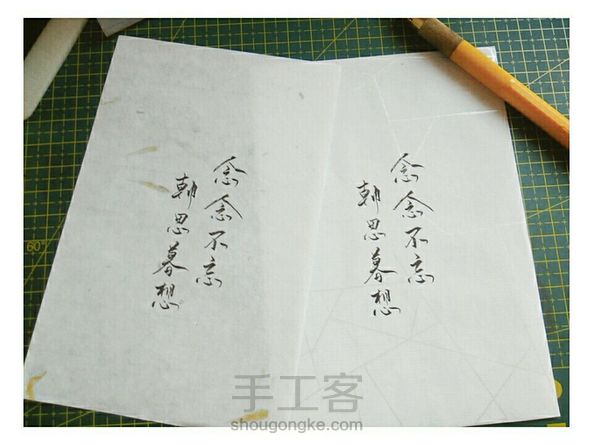 念念不忘
朝思暮想
念念不忘
朝思暮想
60°
手工客
shougongke.com